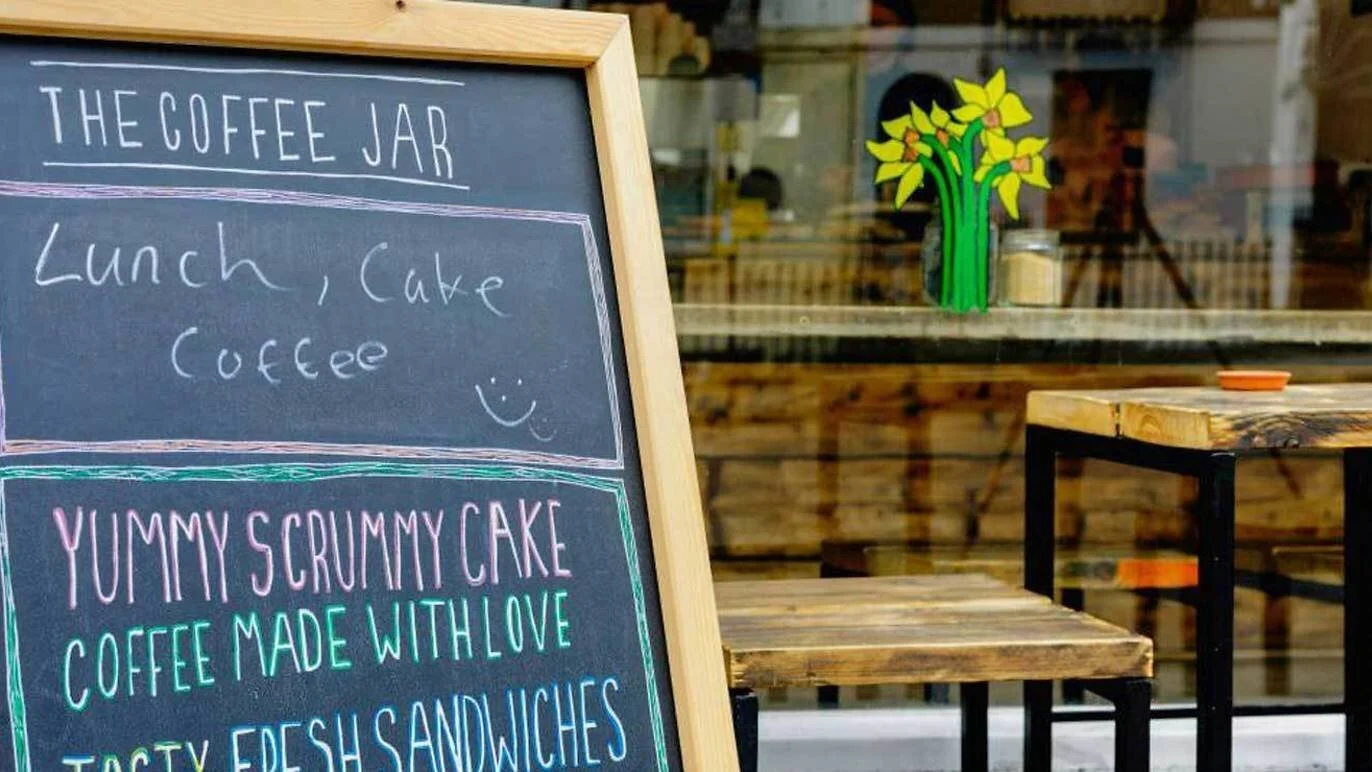 THE COFFEE JAR
Lunch, Cake
Coffee
YUMMY SCRUMMY CAKE
COFFEE MADE WITH LOVE
TASTY FRESH SANDWICHES